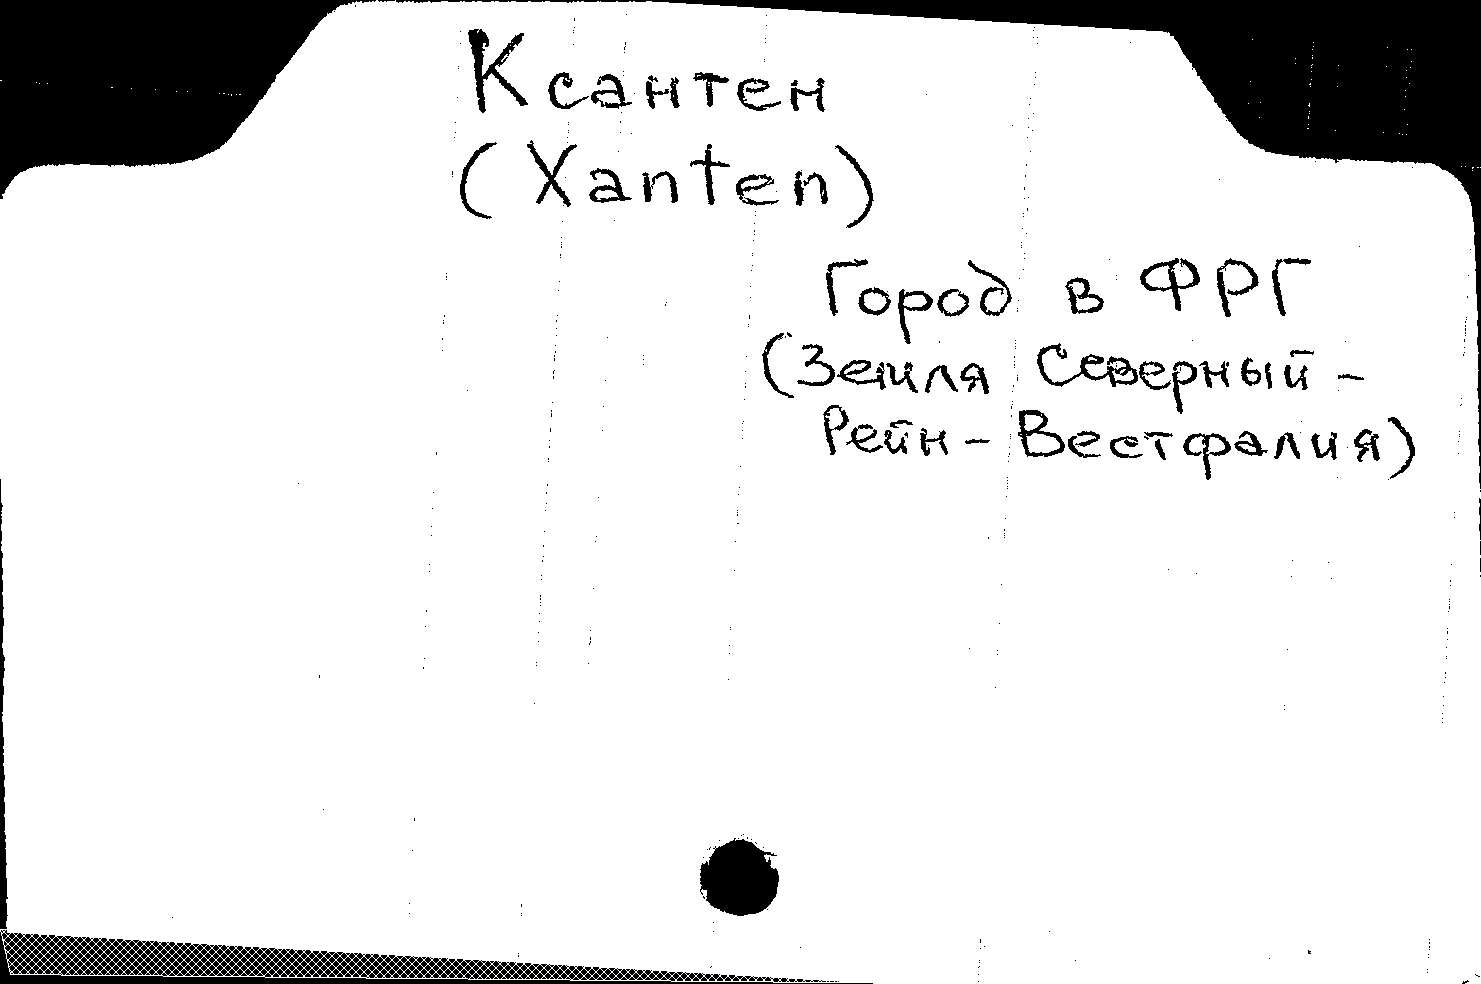 Ксантен
(Xanten)
Город в ФРГ
(Земля Северный -
Рейн - Вестфалия)